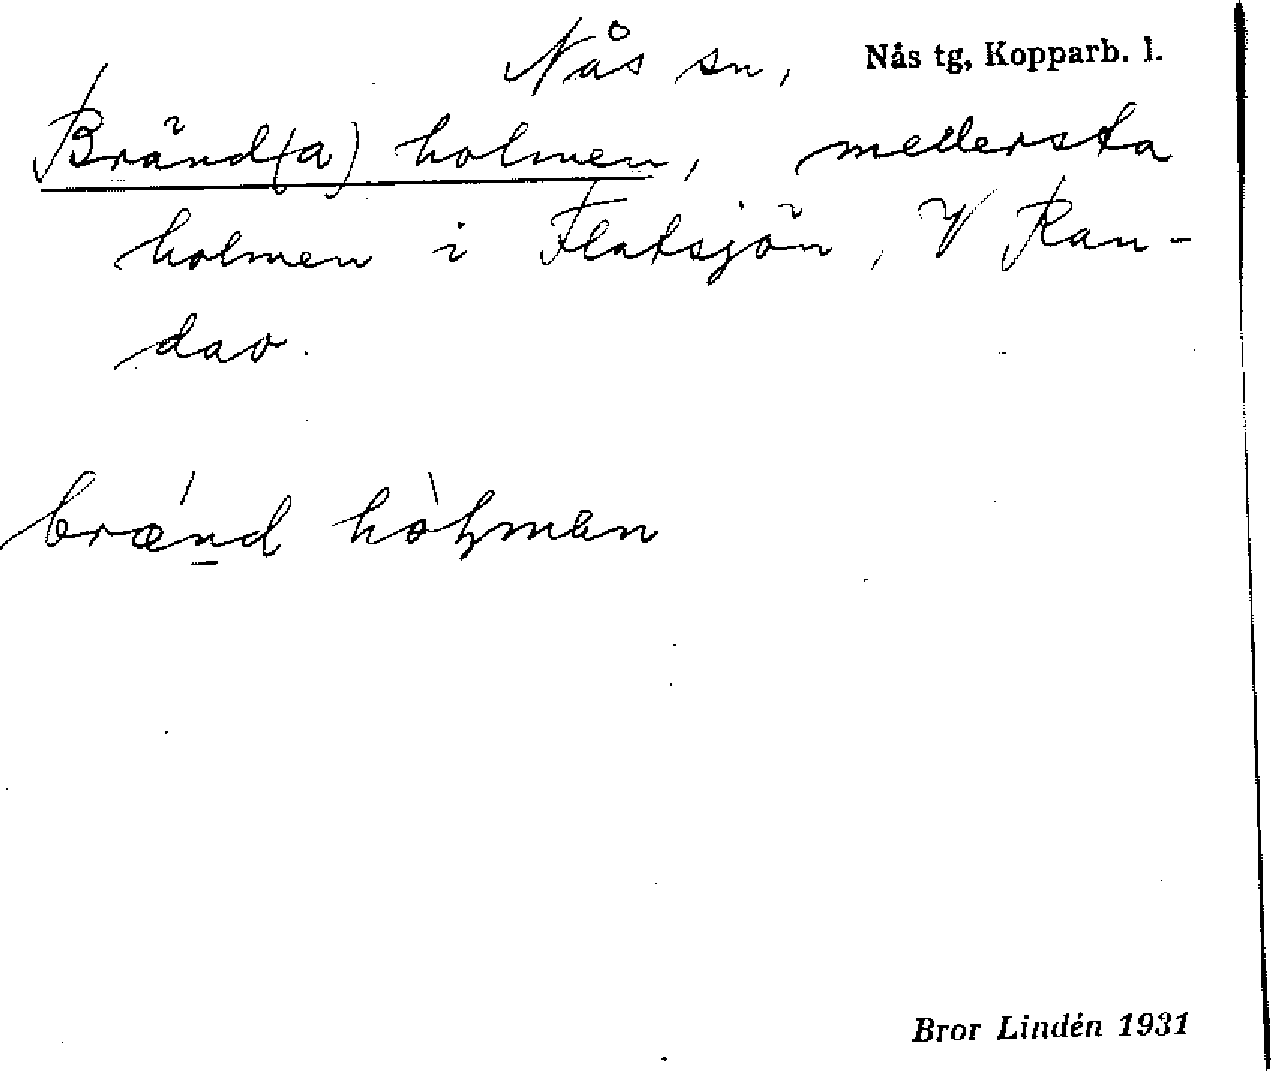 Nås sn, Nås tg, Kopparb. l.
Bränd(a) holmen, mellersta
holmen i Flatsjön, V Ran-
dao.
brǽnd hòɫmen
Bror Lindén 1931